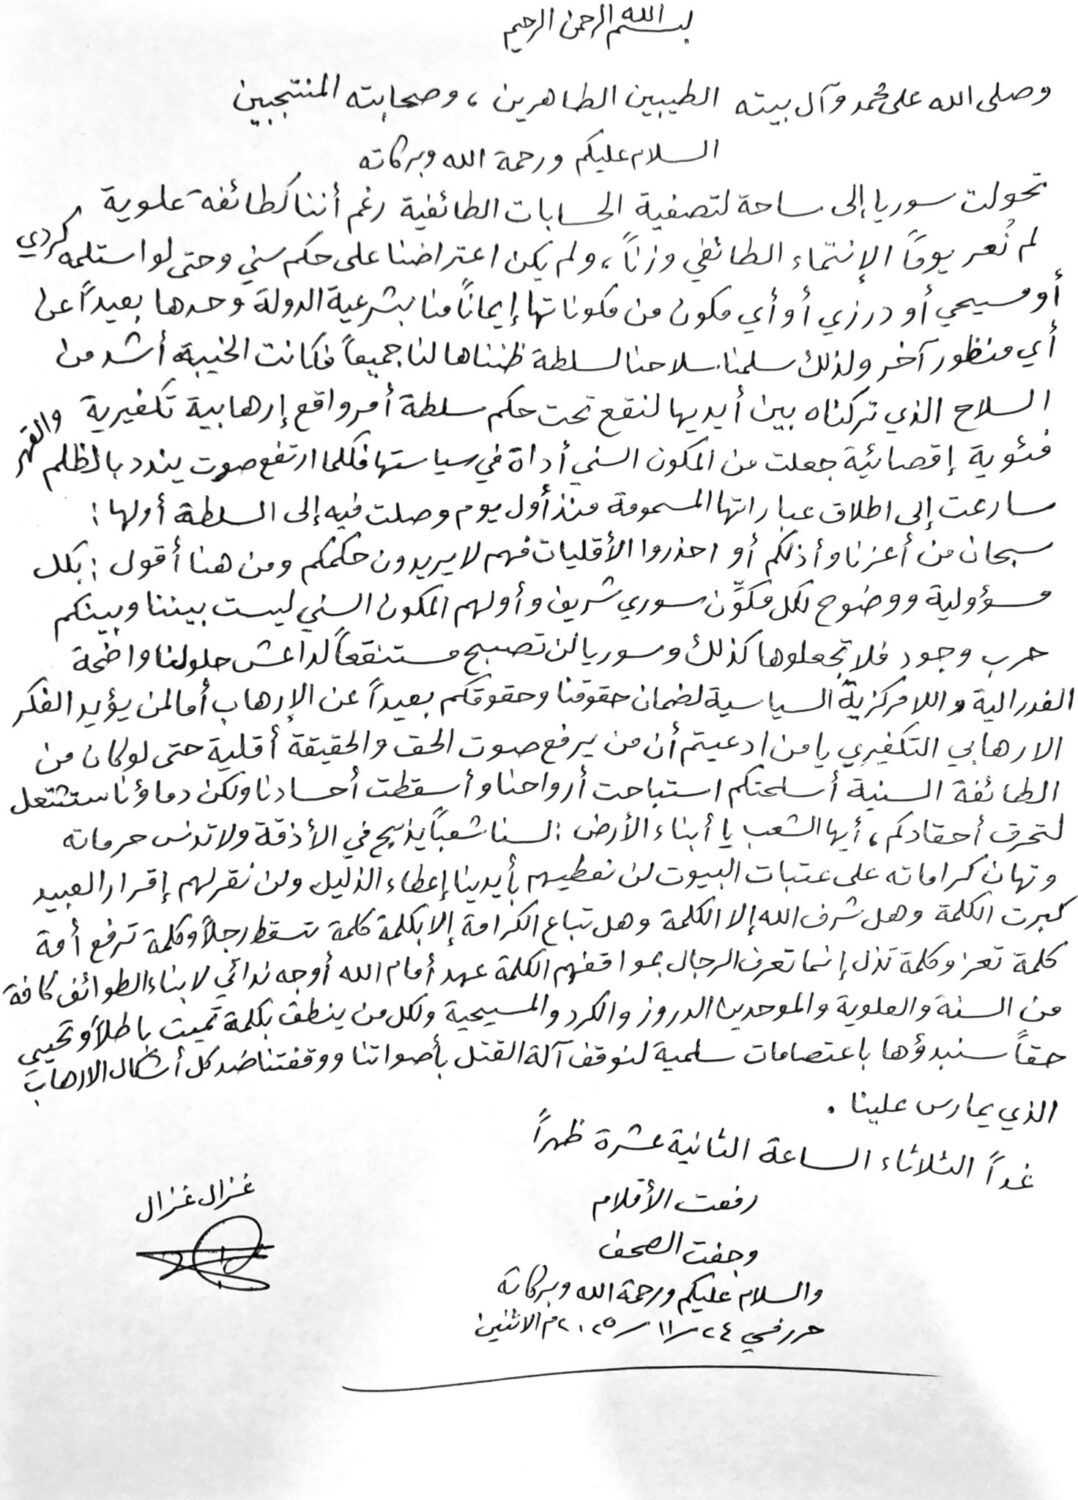 بسم الله الرحمن الرحيم
وصلى الله على محمد وآل بيته الطيبين الطاهرين ، وصحابته المنتجبين
السلام عليكم ورحمة الله وبركاته
تحولت سوريا إلى ساحة لتصفية الحسابات الطائفية رغم أننا كطائفة علوية
لم نُعر يوماً الإنتماء الطائفي وزناً ، ولم يكن اعتراضنا على حكم سني وحتى لو استلمه كردي
أو مسيحي أو درزي أو أي مكون من مكوناتها إيماناً منا بشرعية الدولة وحدها بعيداً عن
أي منظور آخر ولذلك سلمنا سلاحنا لسلطة ظنناها لنا جميعاً فكانت الخيبة أشد من
السلاح الذي تركناه بين أيديها لنقع تحت حكم سلطة أمر واقع إرهابية تكفيرية
فئوية إقصائية جعلت من المكون السني أداة في سياستها فكلما ارتفع صوت يندد بالظلم والقهر
سارعت إلى اطلاق عباراتها المسمومة منذ أول يوم وصلت فيه إلى السلطة أولها :
سبحان من أعزنا وأذلكم أو احذروا الأقليات فهم لا يريدون حكمكم ومن هنا أقول : بكل
مسؤولية ووضوح لكل مكوِّن سوري شريف وأولهم المكون السني ليست بيننا وبينكم
حرب وجود فلا تجعلوها كذلك وسوريا لن تصبح مستنقعاً لداعش حلولنا واضحة
الفدرالية و اللامركزية السياسية لضمان حقوقنا وحقوقكم بعيداً عن الإرهاب أما لمن يؤيد الفكر
الارهابي التكفيري يا من ادعيتم أن من يرفع صوت الحق والحقيقة أقلية حتى لو كان من
الطائفة السنية أسلحتكم استباحت أرواحنا وأسقطت أجسادنا ولكن دماؤنا ستشتعل
لتحرق أحقادكم ، أيها الشعب يا أبناء الأرض : لسنا شعباً يذبح في الأذقة ولا تدنس حرماته
وتهان كراماته على عتبات البيوت لن نعطيهم بأيدينا إعطاء الذليل ولن نقر لهم إقرار العبيد
كبرت الكلمة وهل شرف الله إلا الكلمة وهل تباع الكرامة إلا بكلمة كلمة تسقط رجلاً وكلمة ترفع أمة
كلمة تعز وكلمة تذل إنما تعرف الرجال بمواقفهم الكلمة عهد أمام الله أوجه ندائي لابناء الطوائف كافة
من السنة والعلوية والموحدين الدروز والكرد والمسيحية ولكل من ينطق بكلمة تميت باطلاً وتحيي
حقاً سنبدؤها باعتصامات سلمية لنوقف آلة القتل بأصواتنا ووقفتنا ضد كل أشكال الارهاب
الذي يمارس علينا .
غداً الثلاثاء الساعة الثانية عشرة ظهراً
رفعت الأقلام
وجفت الصحف
والسلام عليكم ورحمة الله وبركاته
حرر في ٢٤/١١/٢٠٢٥م الاثنين
غزال غزال